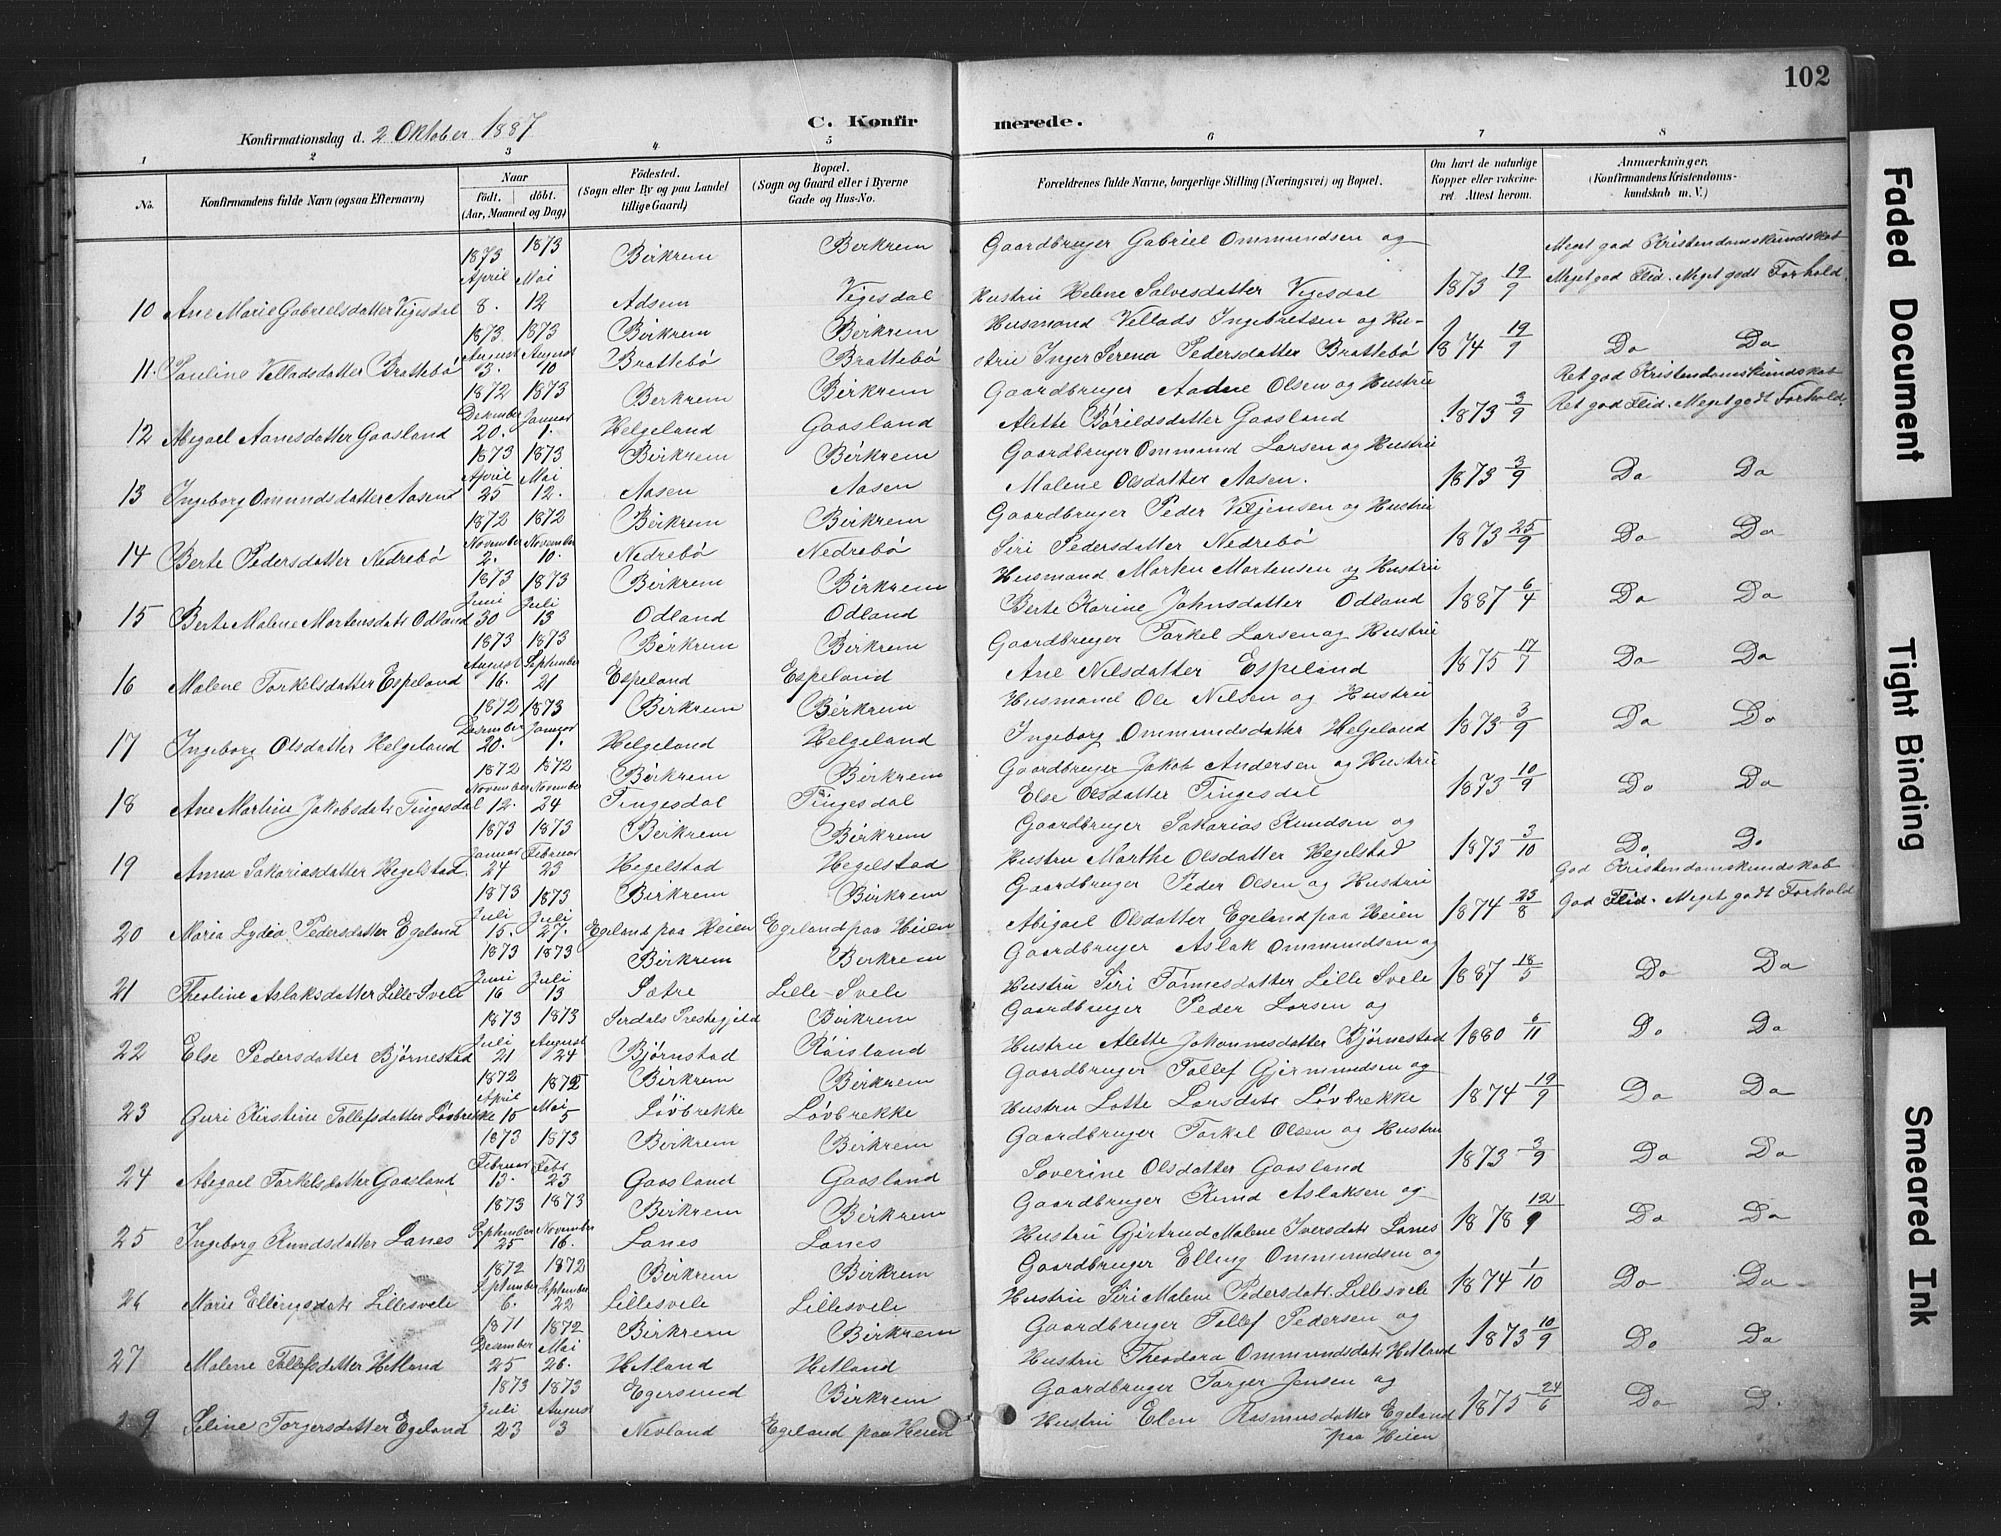 102
Konfirmationsdag d. 2 Oktober 1887
C. Konfirmerede.
1 2 3 4 5 6 7 8
No. Konfirmandens fulde Navn (ogsaa Efternavn) Naar födt. döbt. (Aar, Maaned og Dag) Födested. (Sogn eller By og paa Landet tillige Gaard) Bopæl. (Sogn og Gaard eller i Byerne Gade og Hus-No. Forældrenes fulde Navne, borgerlige Stilling (Næringsvei) og Bopæl. Om havt de naturlige Kopper eller vakcineret. Attest herom. Anmærkninger. (Konfirmandens Kristendomskundskab m. V.)
1873 1873 Birkrem Birkrem Gaardbruger Gabriel Ommundsen og Meget god Kristendomskundskab
10 Ane Marie Gabrielsdatter Vigesdal April 8. Mai 12 Adsem Vigesdal Hustru Helene Salvesdatter Vigesdal 1873 19/9 Meget god Flid. Meget godt Forhold.
1873 1873 Birkrem Birkrem Husmand Vellads Ingebretsen og Hu-
11. Pauline Velladsdatter Brattebö August 3. August 10 Brattebö Brattebö strue Inger Serena Pedersdatter Brattebö 1874 19/9 Do Do
1872 1873 Berkrem Birkrem Gaardbruger Aadne Olsen og Hustrue Ret god Kristendomskundskab
12 Abigael Aanesdatter Gaasland Dezember 20. Januar 1. Helgeland Gaasland Alette Börildsdatter Gaasland 1873 3/9 Ret god Flid. Meget godt Forhold.
1873 1873 Birkrem Birkrem Gaardbruger Ommund Larsen og Hustrue
13 Ingeborg Omundsdatter Aasen April 25 Mai 12. Aasen Aasen Malene Olsdatter Aasen. 1873 3/9 Do Do
1872 1872 Birkrem Birkrem Gaardbruger Peder Vetjensen og Hustrue
14 Berte Pedersdatter Nedrebö November 2. November 10. Nedrebö Nedrebö Siri Pedersdatter Nedrebö 1873 25/9 Do Do
1873 1873 Birkrem Birkrem Husmand Morten Mortensen og Hustrue
15 Berte Malene Mortensdatr Odland Juni 30 Juli 13 Odland Odland Berte Karine Johnsdatter Odland 1887 6/4 Do Do
1873 1873 Birkrem Birkrem Gaardbruger Torkel Larsen og Hustrue
16 Malene Torkelsdatter Espeland August 16. September 21 Espeland Espeland Ane Nilsdatter Espeland 1875 17/7 Do Do
1872 1873 Birkrem Birkrem Husmand Ole Nilsen og Hustrue
17 Ingeborg Olsdatter Helgeland Desember 20. Januar 1. Helgeland Helgeland Ingeborg Ommundsdatter Helgeland 1873 3/9 Do Do
1872 1872 Birkrem Birkrem Gaardbruger Jakob Andersen og Hustrue
18 Ane Martine Jakobsdatr Tingesdal November 12. November 24 Tingesdal Tingesdal Else Olsdatter Tingesdal 1873 10/9 Do Do
1873 1873 Birkrem Birkrem Gaardbruger Sakarias Knudsen og
19 Anna Sakariasdatter Hegelstad. Januar 24 Februar 23 Hegelstad Hegelstad Hustru Marthe Olsdatter Hegelstad 1873 3/10 Do. Do
1873 1873 Birkrem Birkrem Gaardbruger Peder Olsen og Hustrue God Kristendomskundskab
20 Maria Lydia Pedersdatter Egeland Juli 15. Juli 27. Egeland paa Heien Egeland paa Heien Abigael Olsdatter Egeland paa Heien 1874 23/8 God Flid. Meget godt Forhold
1873 1873 Birkrem Birkrem Gaardbruger Aslak Ommundsen og
21 Theoline Aslaksdatter Lille-Svele Juni 16 Juli 13 Sætre Lille-Svele Hustru Siri Tönnesdatter Lille Svele 1887 18/5 Do Do
1873 1873 Serdals Prestegjeld Birkrem Gaardbruger Peder Larsen og
22 Else Pedersdatter Björnestad Juli 21 August 24 Björnstad Röisland Hustru Alette Johannesdatter Björnestad 1880 6/11 Do Do
1872 1872 Birkrem Birkrem Gaardbruger Tollef Girmundsen og
23 Guri Kirstine Tollefsdatter Lövbrekke April 15 Mai 5 Lövbrekke Lövbrekke Hustru Lotte Larsdatr Lövbrekke 1874 19/9 Do Do
1873 1873 Birkrem Birkrem Gaardbruger Torkel Olsen og Hustru
24 Abigael Torkelsdatter Gaasland Februar 13. Febr 23 Gaasland Gaasland Soverine Olsdatter Gaasland 1873 3/9 Do Do
1873 1873 Birkrem Birkrem Gaardbruger Knud Aslaksen og
25 Ingeborg Knudsdatter Lanes September 25 November 16. Lanes Lanes Hustru Girtrud Malene Iversdatr Lanes 1878 12/9 Do Do
1872 1872 Birkrem Birkrem Gaardbruger Elling Ommundsen og
26 Marie Ellingsdatr Lillesvele September 6. September 22 Lillesvele Lillesvele Hustru Siri Malene Pedersdatr. Lillesvele 1874 1/10 Do Do
1871 1872 Birkrem Birkrem Gaardbruger Tollef Pedersen og
27 Malene Tollefsdatter Hetland Desember 25 Mai 26. Hetland Hetland Hustru Theodora Ommundsdatr Hetland 1873 10/9 Do Do
1873 1873 Egersund Birkrem Gaardbruger Torger Jensen og
29 Seline Torgersdatter Egeland Juli 23 August 3 Nevland Egeland paa Heien Hustru Elen Rasmusdatter Egeland 1875 24/6 Do D.
paa Heien
Faded Document
Tight Binding
Smeared Ink